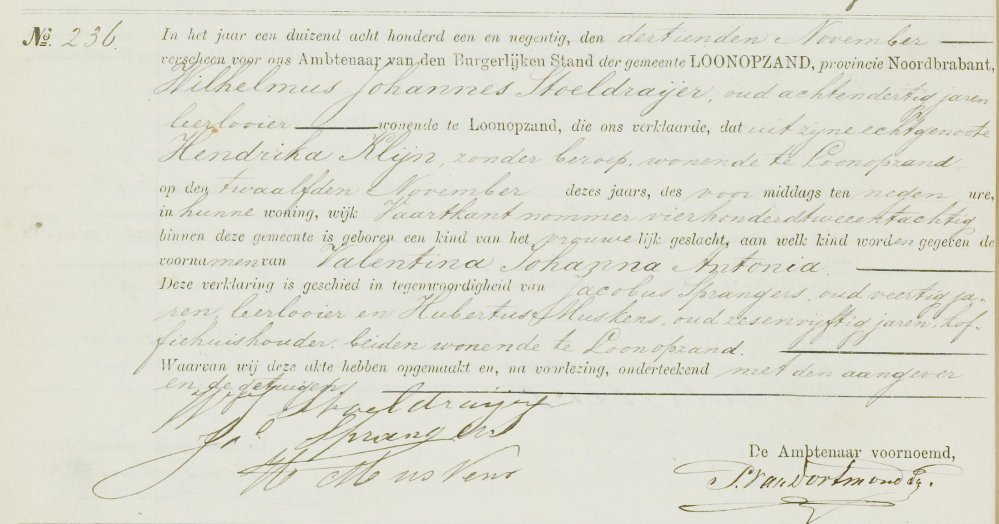 No. 236.
In het jaar een duizend acht honderd een en negentig, den dertienden November
verscheen voor ons Ambtenaar van den Burgerlijken Stand der gemeente LOONOPZAND, provincie Noordbrabant,
Wilhelmus Johannes Stoeldraijer, oud achtendertig jaren
leerlooier wonende te Loonopzand, die ons verklaarde, dat uit zijne echtgenoote
Hendrika Klijn, zonder beroep, wonende te Loonopzand
op den twaalfden November dezes jaars, des voor middags ten negen ure,
in hunne woning, wijk Vaartkant nommer vierhonderdtweeentachtig
binnen deze gemeente is geboren een kind van het vrouwelijk geslacht, aan welk kind worden gegeven de
voornamen van Valentina Johanna Antonia.
Deze verklaring is geschied in tegenwoordigheid van Jacobus Sprangers, oud veertig ja-
ren, leerlooier en Hubertus Muskens, oud zesenvijftig jaren, kof-
fiehuishouder, beiden wonende te Loonopzand.
Waarvan wij deze akte hebben opgemaakt en, na voorlezing, onderteekend met den aangever
en de getuigen
W J Stoeldraijer
Js. Sprangers
H Muskens
De Ambtenaar voornoemd,
P. Van Dortmond